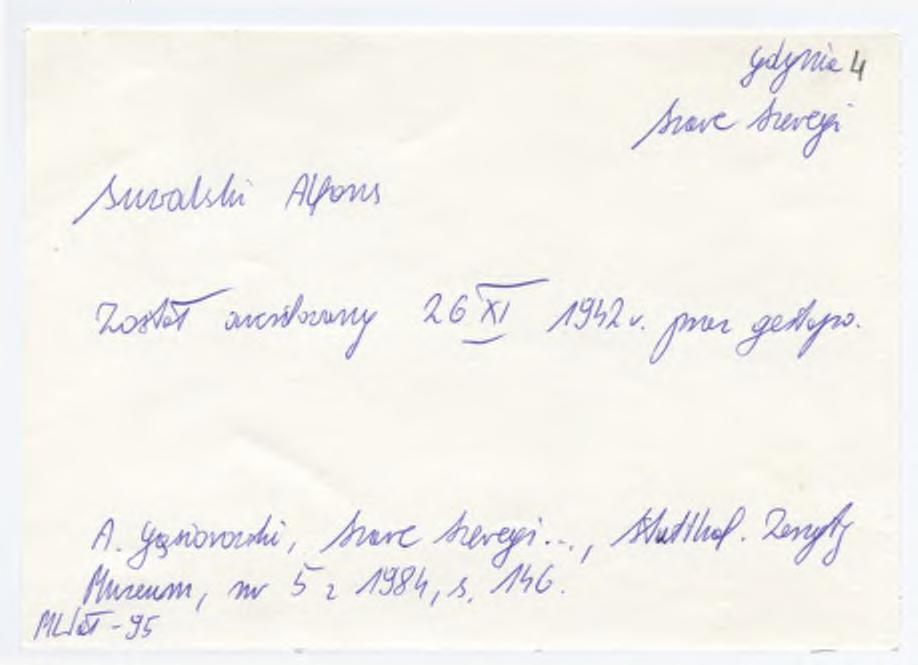 Gdynia 4
Szare Szeregi
Suwalski Alfons
Został aresztowany 26 XI 1942 r. przez gestapo.
A. Gąsiorowski, Szare Szeregi..., Stutthof. Zeszyty
Muzeum, nr 5 z 1984, s. 146.